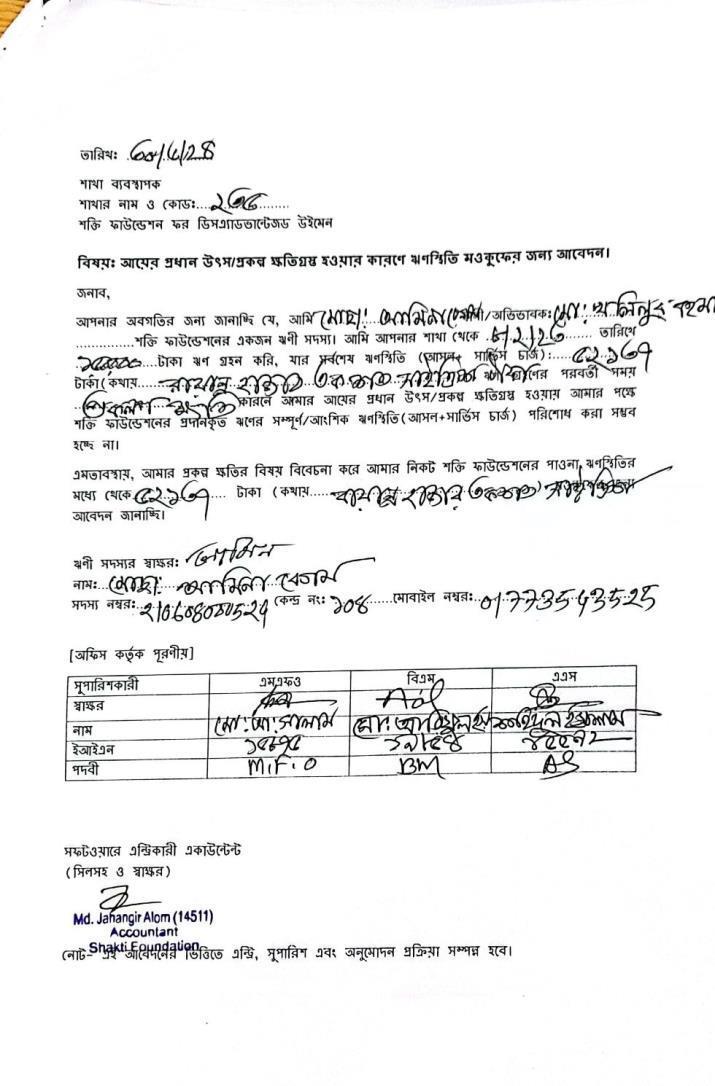 তারিখ:
শাখা ব্যবস্থাপক
শাখার নাম ও কোড:....২৩৫.........
শক্তি ফাউন্ডেশন ফর ডিসএ্যাডভান্টেজড উইমেন
বিষয়: আয়ের প্রধান উৎস/প্রকল্প ক্ষতিগ্রস্ত হওয়ার কারণে ঋণস্থিতি মওকুফের জন্য আবেদন।
জনাব,
আপনার অবগতির জন্য জানাচ্ছি যে, আমি মোছা: আমিনা বেগম/অভিভাবক: মো: খলিলুর রহমা
..............শক্তি ফাউন্ডেশনের একজন ঋণী সদস্য। আমি আপনার শাখা থেকে তারিখে
টাকা ঋণ গ্রহন করি, যার সর্বশেষ ঋণস্থিতি (আসল+ সার্ভিস চার্জ):....৫২১৬৭
টাকা(কথায়.....বায়ান্ন হাজার একশত সাতষট্টি ঋণ গ্রহণের পরবর্তী সময়
কারনে আমার আয়ের প্রধান উৎস/প্রকল্প ক্ষতিগ্রস্ত হওয়ায় আমার পক্ষে
শক্তি ফাউন্ডেশনের প্রদানকৃত ঋণের সম্পূর্ণ/আংশিক ঋণস্থিতি(আসল+সার্ভিস চার্জ) পরিশোধ করা সম্ভব
হচ্ছে না।
এমতাবস্থায়, আমার প্রকল্প ক্ষতির বিষয় বিবেচনা করে আমার নিকট শক্তি ফাউন্ডেশনের পাওনা ঋণস্থিতির
মধ্যে থেকে ৫২১৬৭.... টাকা (কথায়.....বায়ান্ন হাজার একশত সাতষট্টি
আবেদন জানাচ্ছি।
ঋণী সদস্যর স্বাক্ষর: আমিনা
নাম:...মোছা: আমিনা বেগম
সদস্য নম্বর: কেন্দ্র নং: ১০৪......মোবাইল নম্বর:..01773543525
[অফিস কর্তৃক পূরণীয়]
সুপারিশকারী এমএফও বিএম এএস
স্বাক্ষর
নাম মো: আ: সালাম মো: আরিফুল ইসলাম
ইআইএন
পদবী M.F.O BM AS
সফটওয়ারে এন্ট্রিকারী একাউন্টেন্ট
(সিলসহ ও স্বাক্ষর)
Md. Jahangir Alom (14511)
Accountant
Shakti Foundation
নোট- এই আবেদনের ভিত্তিতে এন্ট্রি, সুপারিশ এবং অনুমোদন প্রক্রিয়া সম্পন্ন হবে।